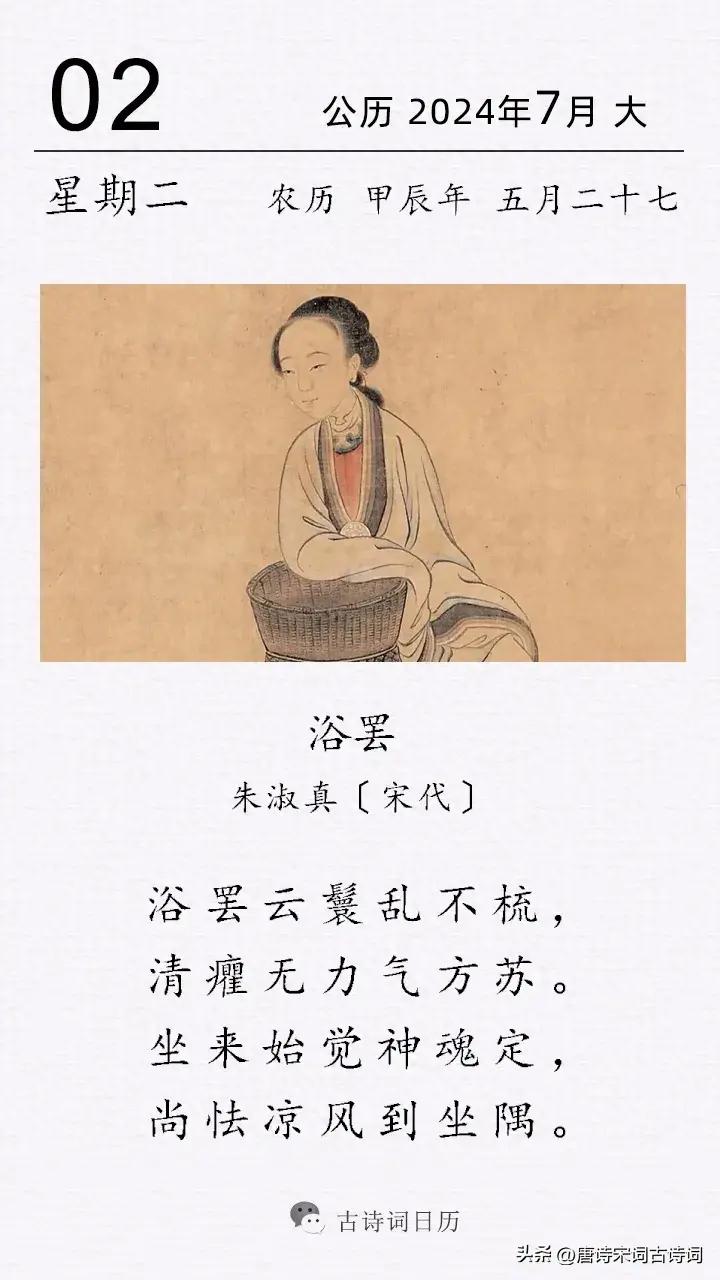 02
公历 2024年7月 大
星期二 农历 甲辰年 五月二十七
浴罢
朱淑真〔宋代〕
浴罢云鬟乱不梳，
清癯无力气方苏。
坐来始觉神魂定，
尚怯凉风到坐隅。
古诗词日历
头条 @唐诗宋词古诗词